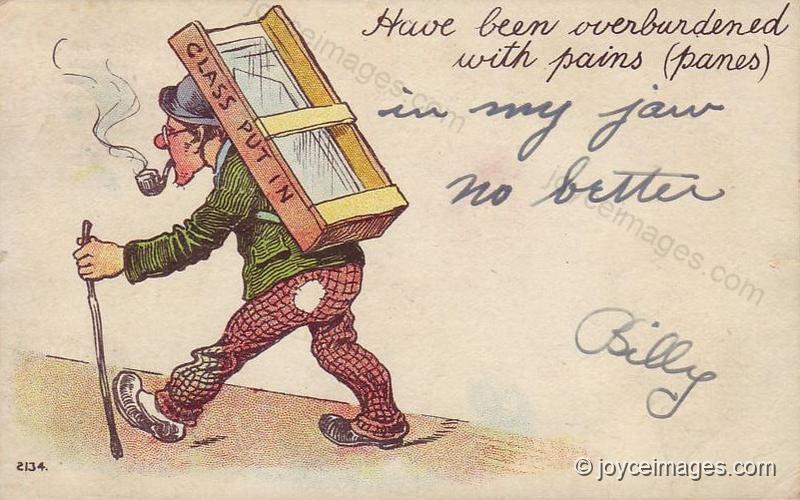 Have been overburdened
with pains (panes)
in my jaw
no better
GLASS PUT IN
Billy
2134.
joyceimages.com
joyceimages.com
joyceimages.com
© joyceimages.com